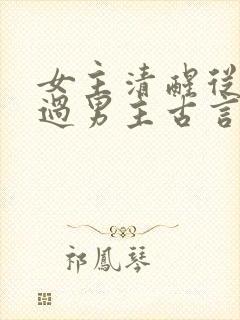 女主清醒從
過男主古言
祁鳳琴